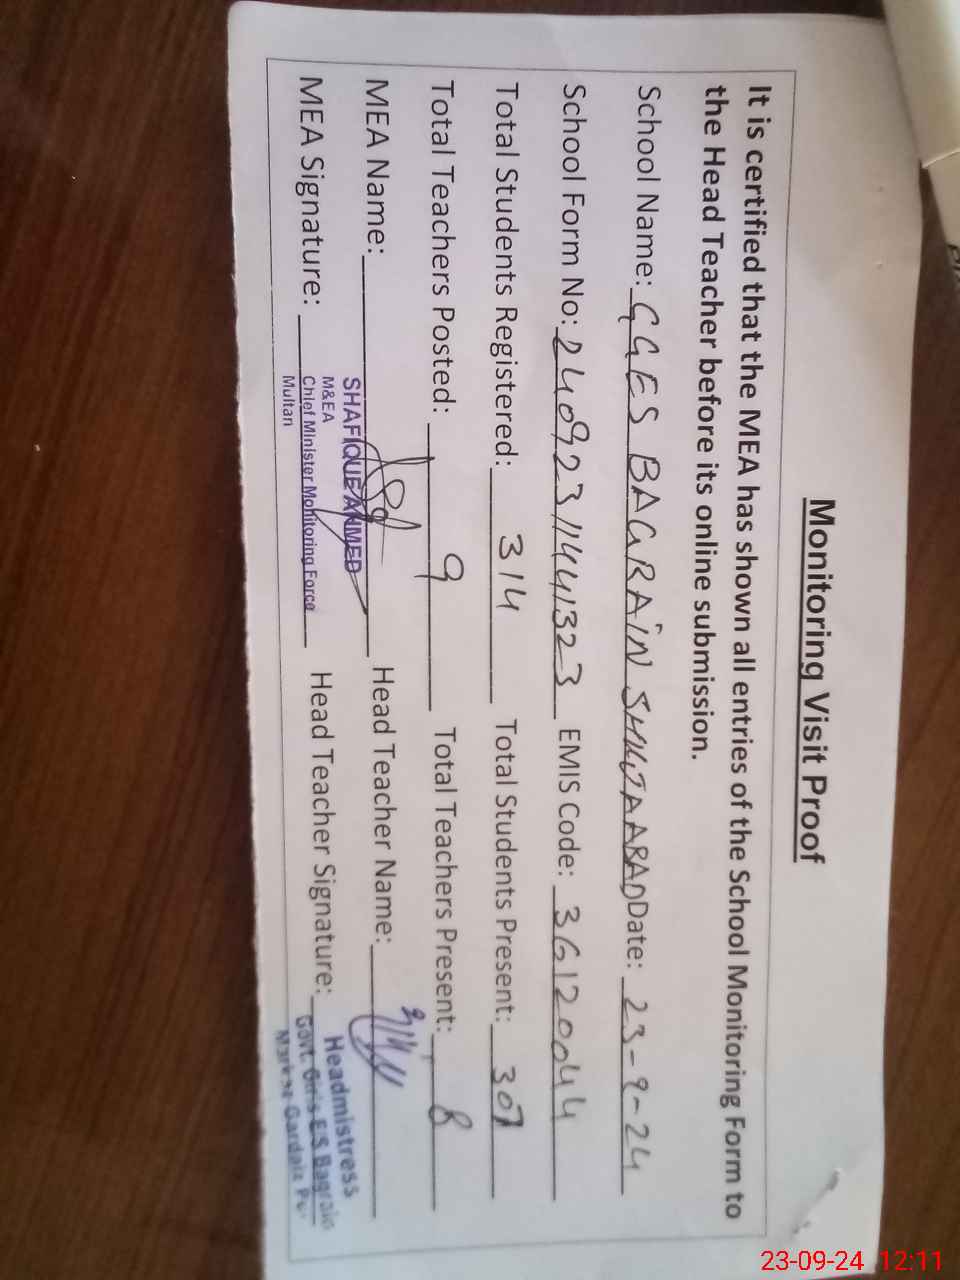 Monitoring Visit Proof
It is certified that the MEA has shown all entries of the School Monitoring Form to
the Head Teacher before its online submission.
School Name: GGES BAGRAIN SHUJAABAD Date: 23-9-24
School Form No: 2409231144323 EMIS Code: 36120044
Total Students Registered: 314 Total Students Present: 307
Total Teachers Posted: 9 Total Teachers Present: 8
MEA Name: Head Teacher Name:
MEA Signature: Head Teacher Signature:
SHAFIQUE AHMED
M&EA
Chief Minister Monitoring Force
Multan
Headmistress
Govt. Girls E.S Bagrain
Markaz
23-09-24 12:11